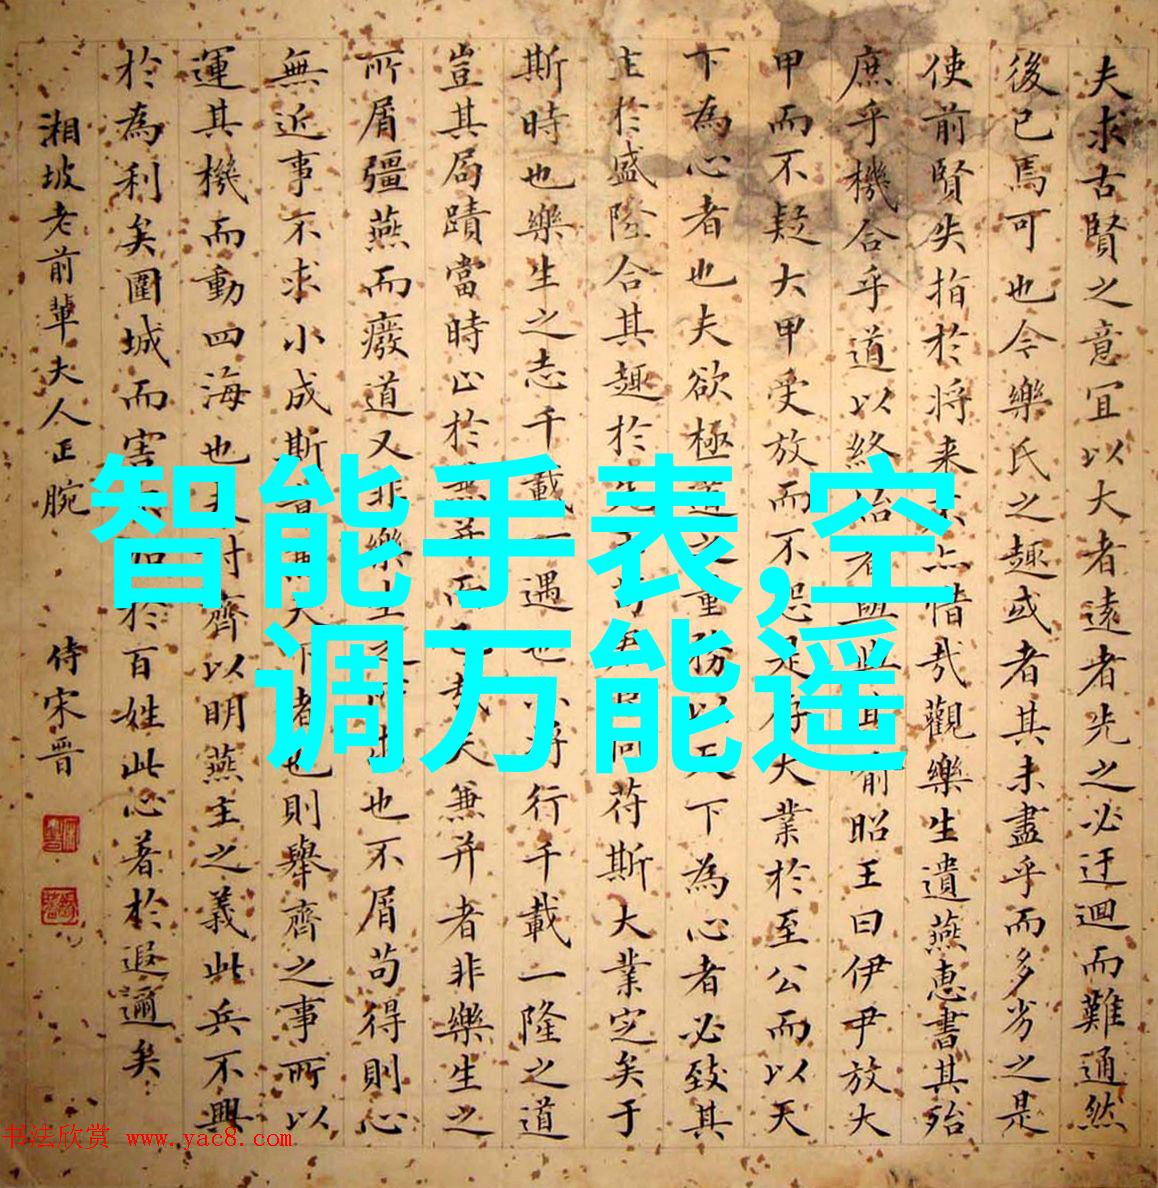 夫求古賢之意宜以大者遠者先之必迂迴而難通然
後已焉可也今樂氏之趣或者其未盡乎而多劣之是
使前賢失指於将来不亦惜哉觀樂生遺燕惠書其殆
庶乎機合乎道以終始者與此其喻昭王曰伊尹放大
甲而不疑大甲受放而不怨是存大業於至公而以天
下為心者也夫欲極道之量務以天下為心者必致其
主於盛隆合其趣於先王苟君臣同符斯大業定矣于
斯時也樂生之志千載一遇也亦将行千載一隆之道
豈其局蹟當時止於兼并而已哉夫兼并者非樂生之
所屑彊燕而廢道又非樂生之所求也不屑苟得則心
無近事不求小成斯意兼天下者也則舉齊之事所以
運其機而動四海也夫討齊以明燕主之義此兵不興
於為利矣圍城而害不加於百姓此心著於遐邇矣
湘坡老前輩夫人正腕 侍宋晋
智能手表,空
调万能遥
书法欣赏 www.yac8.com